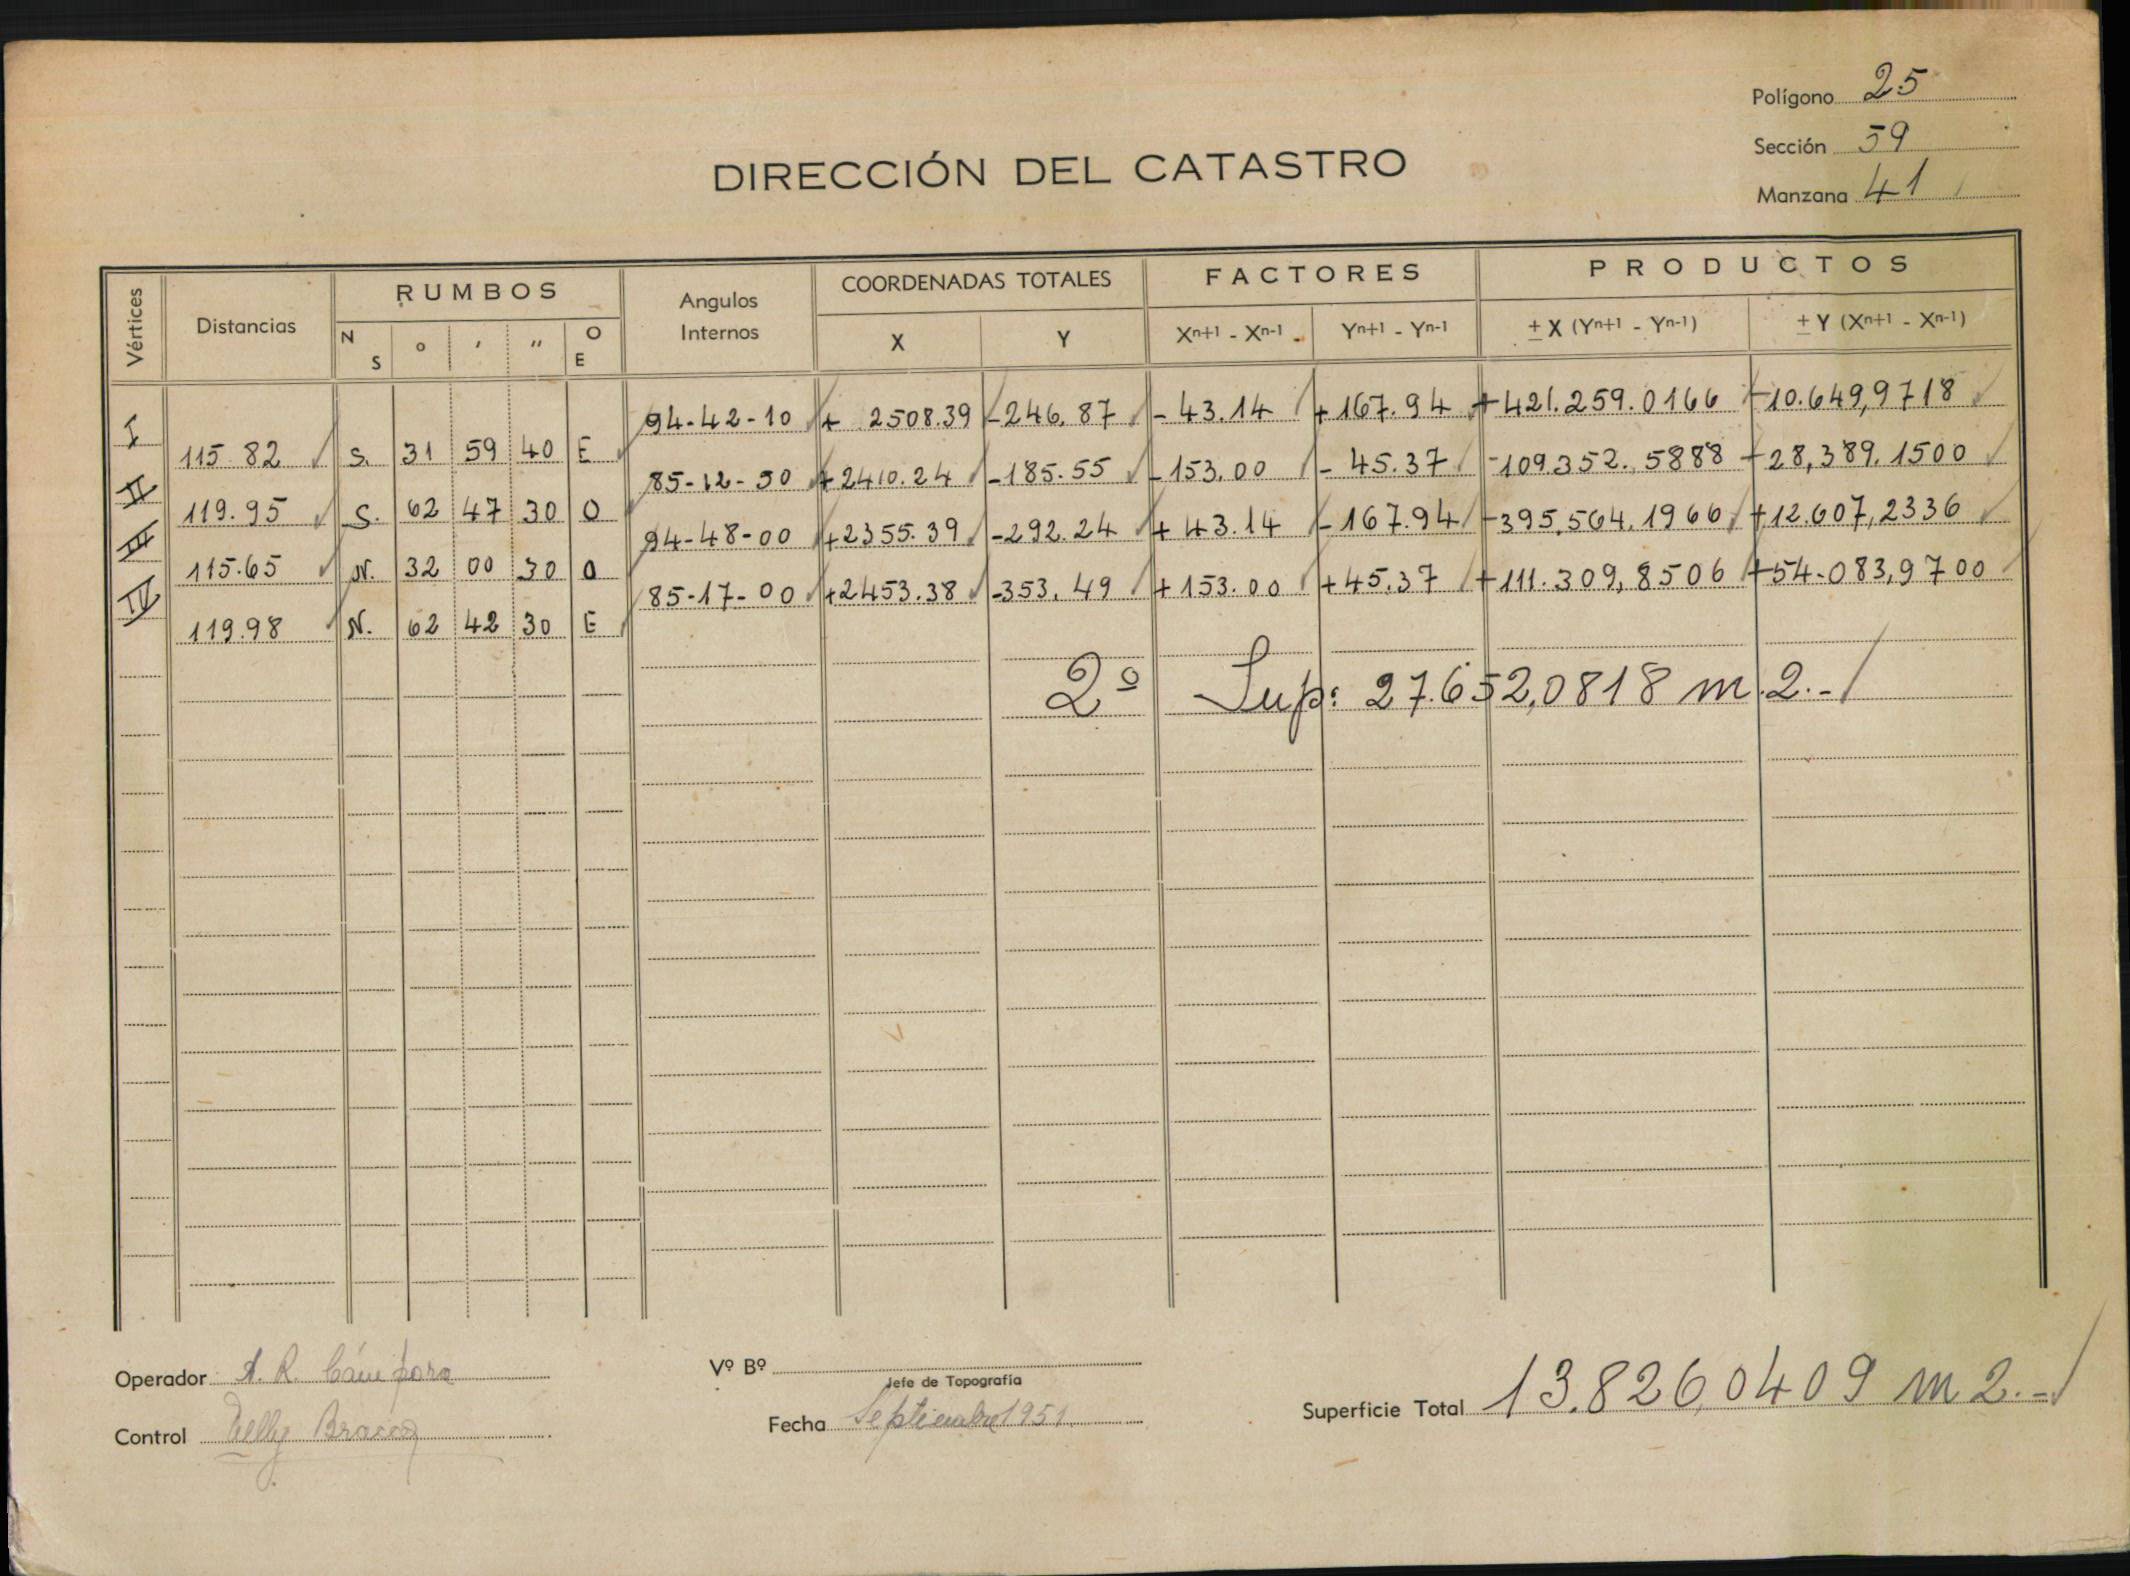 Polígono 25
Sección 59
Manzana 41
DIRECCIÓN DEL CATASTRO
Vértices Distancias RUMBOS Angulos Internos COORDENADAS TOTALES FACTORES PRODUCTOS
N S o ' " O E X Y Xⁿ⁺¹ - Xⁿ⁻¹ Yⁿ⁺¹ - Yⁿ⁻¹ ± X (Yⁿ⁺¹ - Yⁿ⁻¹) ± Y (Xⁿ⁺¹ - Xⁿ⁻¹)
I 94-42-10 + 2508.39 -246.87 - 43.14 +167.94 +421.259.0166 +10.649,9718
115 82 S. 31 59 40 E
II 85-12-50 +2410.24 -185.55 -153.00 - 45.37 -109.352.5888 +28,389.1500
119.95 S. 62 47 30 O
III 94-48-00 +2355.39 -292.24 + 43.14 -167.94 -395,564.1966 +12.607,2336
115.65 N. 32 00 30 O
IV 85-17-00 +2453.38 -353.49 +153.00 +45.37 +111.309,8506 +54.083,9700
119.98 N. 62 42 30 E
2º Sup: 27.652,0818 m 2.-
Operador A. R. Cámpora
Control Nelly
Vº Bº
Jefe de Topografía
Fecha Septiembre 1951
Superficie Total 13.826,0409 m 2.-